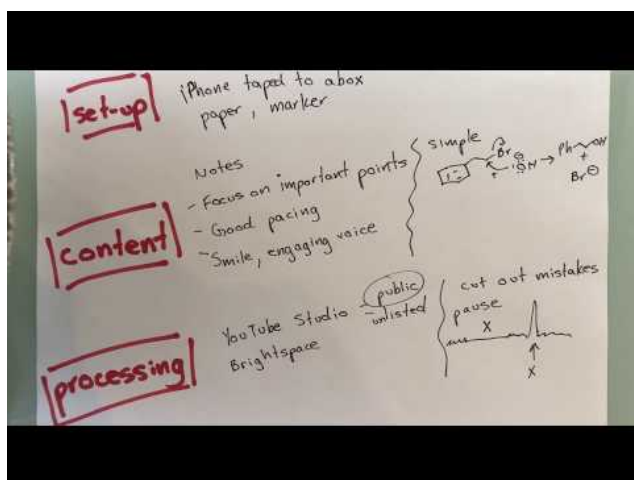 set-up
iPhone taped to a box
paper, marker
content
Notes
- Focus on important points
- Good pacing
- Smile, engaging voice
simple
Br
OH
Ph OH
+
Br⊖
processing
YouTube Studio - public
- unlisted
Brightspace
cut out mistakes
pause
X
X